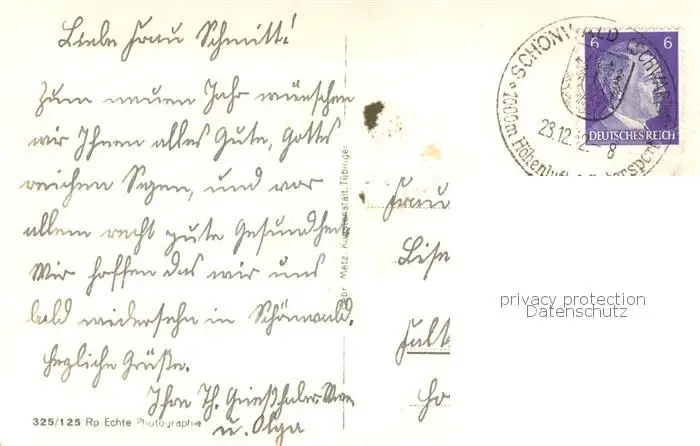 Liebe Frau Schmitt!
Zum neuen Jahr wünschen
wir Ihnen alles Gute, Gottes
reichen Segen, und vor
allem recht gute Gesundheit.
Wir hoffen das wir uns
bald widersehn in Schönwald.
Herzliche Grüße.
Ihre Th.
u. Olga
325/125 Rp Echte Photographie
Gebr. Metz, Kunstanstalt, Tübingen
SCHÖNWALD (SCHWARZW
1000m Höhenluft
23.12.42. 8
6 6
DEUTSCHES REICH
Frau
Lise
Falk
Ho
privacy protection
Datenschutz